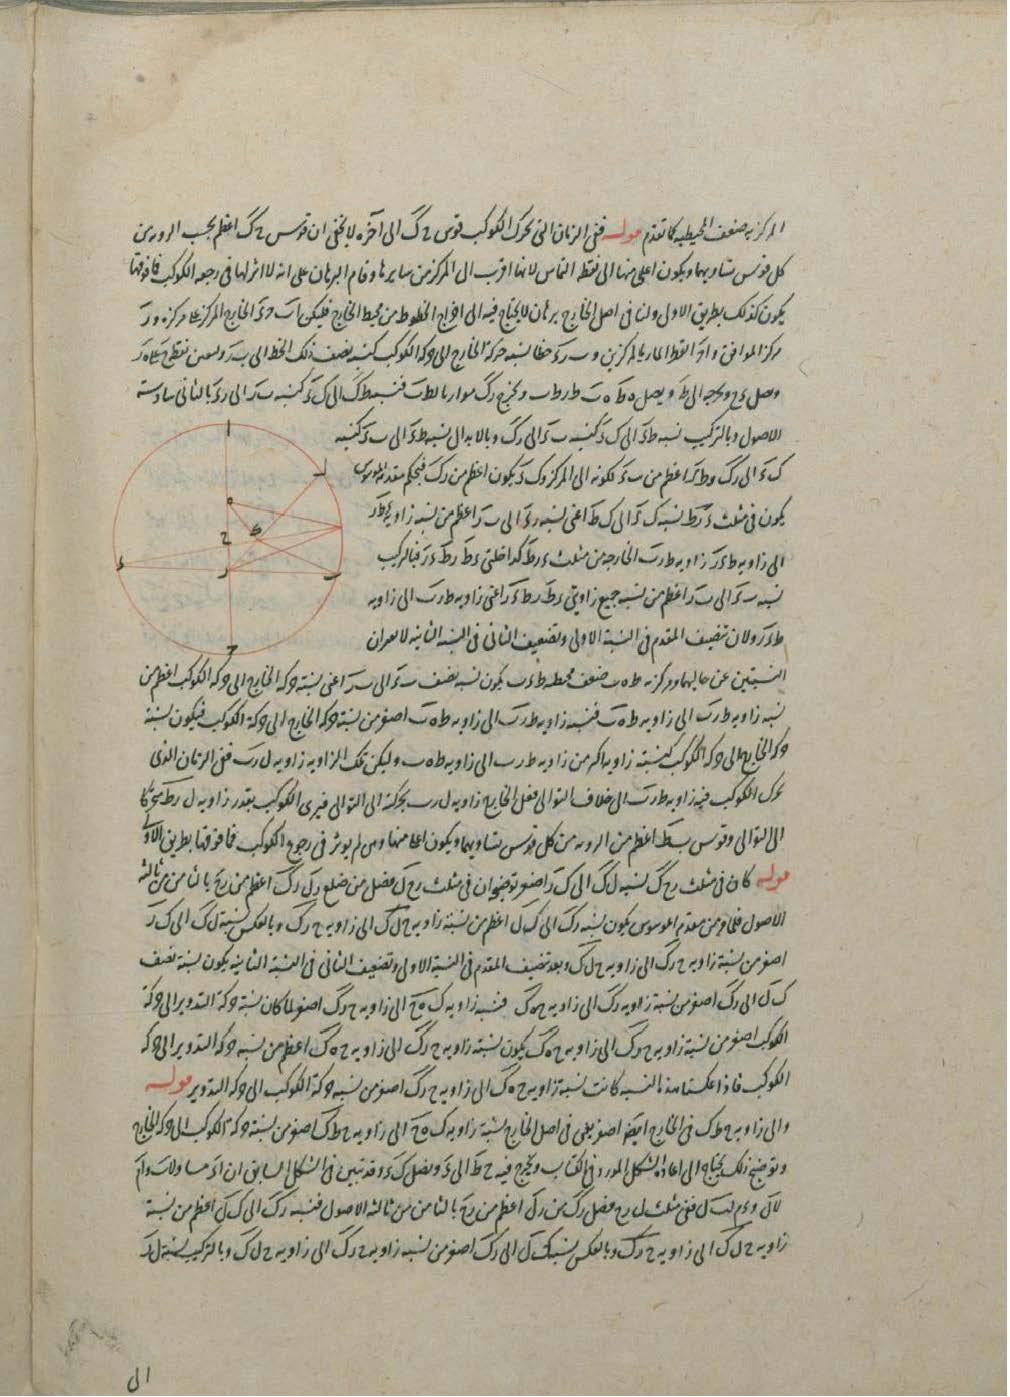 المركزيه ضعف المحيطيه كما تقدم قوله ففى الزمان التى تحرك الكوكب قوس ح ك الى آخره لا يخفى ان قوس ح ك اعظم بحسب الرويه من
كل قوس تساويها ويكون اعلى منها الى نقطه التماس لانها اقرب الى المركز من سايرها وقام البرهان على انه لا اثر لها فى رجعه الكوكب فما فوقها
يكون كذلك بطريق الاولى ولنا فى اصل الخارج برهان لا يحتاج فيه الى اخراج الخطوط من محيط الخارج فليكن ا ب ح ء الخارج المركز على مركز ه و ر
مركز الموافق و ا ح القطر المار بالمركزين و ب ر ء خطا نسبه حركه الخارج الى حركه الكوكب كنسبه نصف ذلك الخط الى ب ر
ونصل ء ح ونخرجه الى ط ونصل ه ط ه ب ط ر ط ب ونخرج ر ك موازيا لط ب فنسبه ط ك الى ك ء كنسبه ب ر الى ر ء بالثانى من سادسة
الاصول وبالتركيب نسبه ط ء الى ك ء كنسبه ب ء الى ر ك وبالابدال نسبه ط ء الى ب ء كنسبه
ك ء الى ر ك و ط ء اعظم من ب ء لكونه الى المركز و ك ء يكون اعظم من ر ك فبحكم مقدمه المونوس
يكون فى مثلث ء ر ط نسبه ك ء الى ك ط اعنى نسبه ر ء الى ب ر اعظم من نسبه زاويه ء ط ر
الى زاويه ط ء ر زاويه ط ر ب الخارجه من مثلث ء ر ط كداخلتى ء ط ر ط ء ر فبالتركيب
نسبه ب ء الى ب ر اعظم من نسبه جميع زاويتى ء ط ر ط ء ر اعنى زاويه ط ر ب الى زاويه
ط ء ر ولان تنصيف المقدم فى النسبة الاولى وتضعيف الثانى فى النسبه الثانيه لا يغيران
النسبتين عن حالهما ومركزيه ط ه ب ضعف محيطه ط ء ب يكون نسبه نصف ب ء الى ب ر اعنى نسبة حركه الخارج الى حركه الكوكب اعظم من
نسبه زاويه ط ر ب الى زاويه ط ه ب فنسبه زاويه ط ر ب الى زاويه ط ه ب اصغر من نسبة حركه الخارج الى حركة الكوكب فيكون نسبة
حركه الخارج الى حركه الكوكب كنسبة زاويه اكبر من زاويه ط ر ب الى زاويه ط ه ب وليكن تلك الزاويه زاويه ل ر ب ففى الزمان الذى
تحرك الكوكب فيه زاويه ط ر ب الى خلاف التوالى فعل الخارج زاويه ل ر ب بحركته الى التوالى فيرى الكوكب بقدر زاويه ل ر ط متحركا
الى التوالى وقوس ب ط اعظم من الرويه من كل قوس تساويها ويكون اعلا منها ولم يوثر فى رجوع الكوكب فما فوقها بطريق الاولى
قوله كان فى مثلث ر ح ك نسبه ل ك الى ك ر اصغر توضيحه ان فى مثلث ر ح ل فضل من ضلع ر ل ر ك اعظم من ر ح بالثامن من ثالثة
الاصول فلما مر من مقدم المونوس يكون نسبه ر ك الى ك ل اعظم من نسبة زاويه ح ل ك الى زاويه ح ر ك وبالعكس نسبة ل ك الى ك ر
اصغر من نسبة زاويه ح ر ك الى زاويه ح ل ك وبعد تنصيف المقدم فى النسبة الاولى وتضعيف الثانى فى النسبة الثانيه يكون نسبة نصف
ك ل الى ر ك اصغر من نسبة زاويه ر ك الى زاويه ح ه ك فنسبه زاويه ك ه ح الى زاويه ح ر ك اصغر لما كان نسبة حركة التدوير الى حركة
الكوكب اصغر من نسبة زاويه ح ر ك الى زاويه ح ه ك يكون نسبة زاويه ح ر ك الى زاويه ح ه ك اعظم من نسبه حركه التدوير الى حركه
الكوكب فاذا عكسنا هذه النسبه كانت نسبة زاويه ح ه ك الى زاويه ح ر ك اصغر من نسبه حركة الكوكب الى حركه التدوير قوله
والى زاويه ح ط ك فى الخارج ايضا اصغر يعنى فى اصل الخارج نسبة زاويه ك ه ح الى زاويه ح ط ك اصغر من نسبة حركة الكوكب الى حركه الخارج
وتوضيح ذلك يحتاج الى اعاده الشكل المورد فى الكتاب ونخرج فيه ح ط الى ء ونصل ك ء وقد تبين فى الشكل السابق ان
ففى مثلث ل ر ح فضل ر ك من ر ل اعظم من ر ح بالثامن من ثالثه الاصول فنسبه ر ك الى ك ل اعظم من نسبة
زاويه ح ل ك الى زاويه ح ر ك وبالعكس نسبه ك ل الى ر ك اصغر من نسبه زاويه ح ر ك الى زاويه ح ل ك وبالتركيب نسبه ل ر
الى